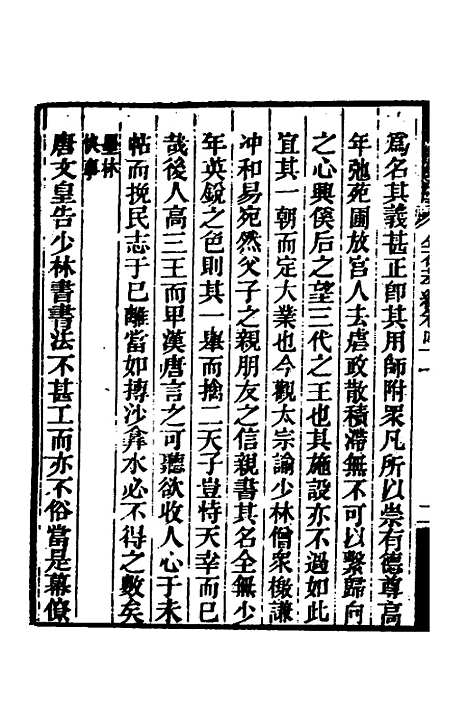 爲名其義甚正卽其用師附眾凡所以崇有德尊高
年弛苑囿放宮人去虐政散積滯無不可以繫歸向
之心興傒后之望三代之王也其施設亦不過如此
宜其一朝而定大業也今觀太宗諭少林僧眾檄謙
冲和易宛然父子之親朋友之信親書其名全無少
年英銳之色則其一舉而擒二天子豈恃天幸而已
哉後人高三王而甲漢唐言之可聽欲收人心于未
帖而挽民志于巳離當如摶沙弇水必不得之數矣
墨林
快事
唐文皇告少林書書法不甚工而亦不俗當是幕僚